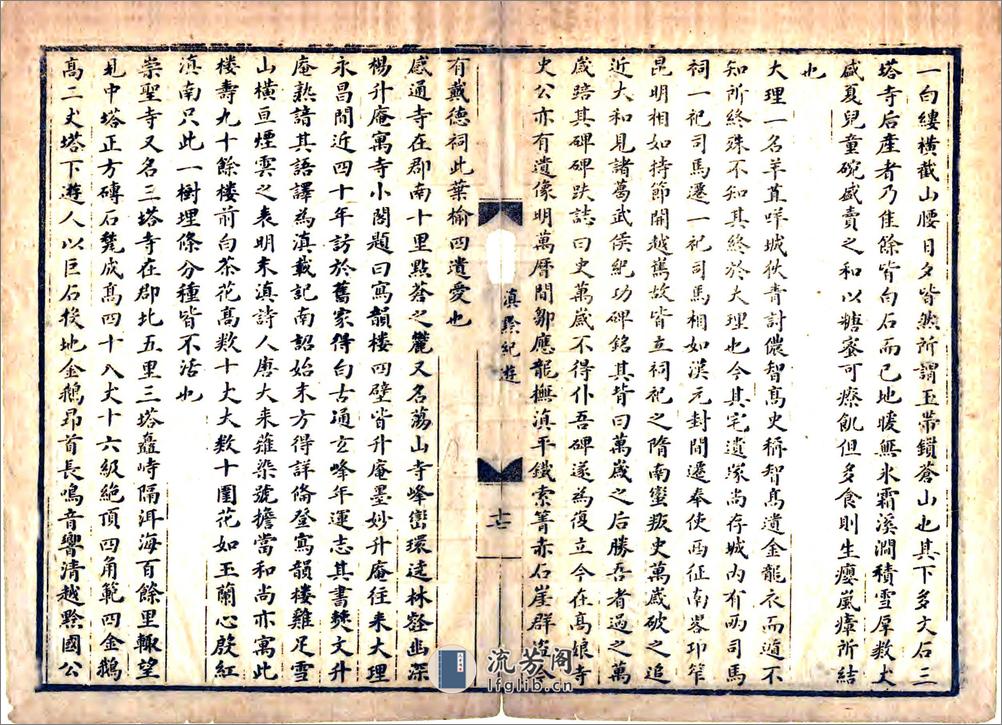 一白縷橫截山腰日夕皆然所謂玉帶鎖蒼山也其下多文石三
塔寺后産者乃佳餘皆白石而已地暖無氷霜溪澗積雪厚数丈
盛夏兒童碗盛賣之和以糖蜜可療飢但多食則生癭嵐瘴所結
也
大理一名羊苴咩城狄青討儂智高史稱智高遺金龍衣而遁不
知所終殊不知其終於大理也今其宅遺塚尚存城内有两司馬
祠一祀司馬遷一祀司馬相如漢元封間遷奉使西征南畧卭笮
昆明相如持節開越嶲故皆立祠祀之隋南蠻叛史萬歲破之追
近大和見諸葛武侯紀功碑銘其背曰萬歲之后勝吾者過之萬
歲踣其碑碑趺誌曰史萬歲不得仆吾碑遂為復立今在髙娘寺
史公亦有遺像明萬厯間鄒應龍撫滇平鐵索箐赤石崖群盗今
滇黔紀遊
十二
有戴德祠此葉榆四遺愛也
感通寺在郡南十里點蒼之麓又名蕩山寺峰巒環逹林壑幽深
楊升庵寓寺小閣題曰寫韻楼四壁皆升庵墨妙升庵往来大理
永昌間近四十年訪於舊家得白古通玄峰年運志其書㸑文升
庵熟諳其語譯為滇載記南詔始末方得詳偹登寫韻楼雞足雪
山橫亘煙雲之表明末滇詩人唐大来薙染號擔當和尚亦寓此
楼壽九十餘楼前白茶花高数十丈大数十圍花如玉蘭心殷紅
滇南只此一樹埋條分種皆不活也
崇聖寺又名三塔寺在郡北五里三塔矗峙隔洱海百餘里輙望
見中塔正方磚石甃成髙四十八丈十六級絶頂四角範四金鵝
髙二丈塔下遊人以巨石投地金鵝昂首長鳴音響清越黔國公
流芳阁
lfglib.cn